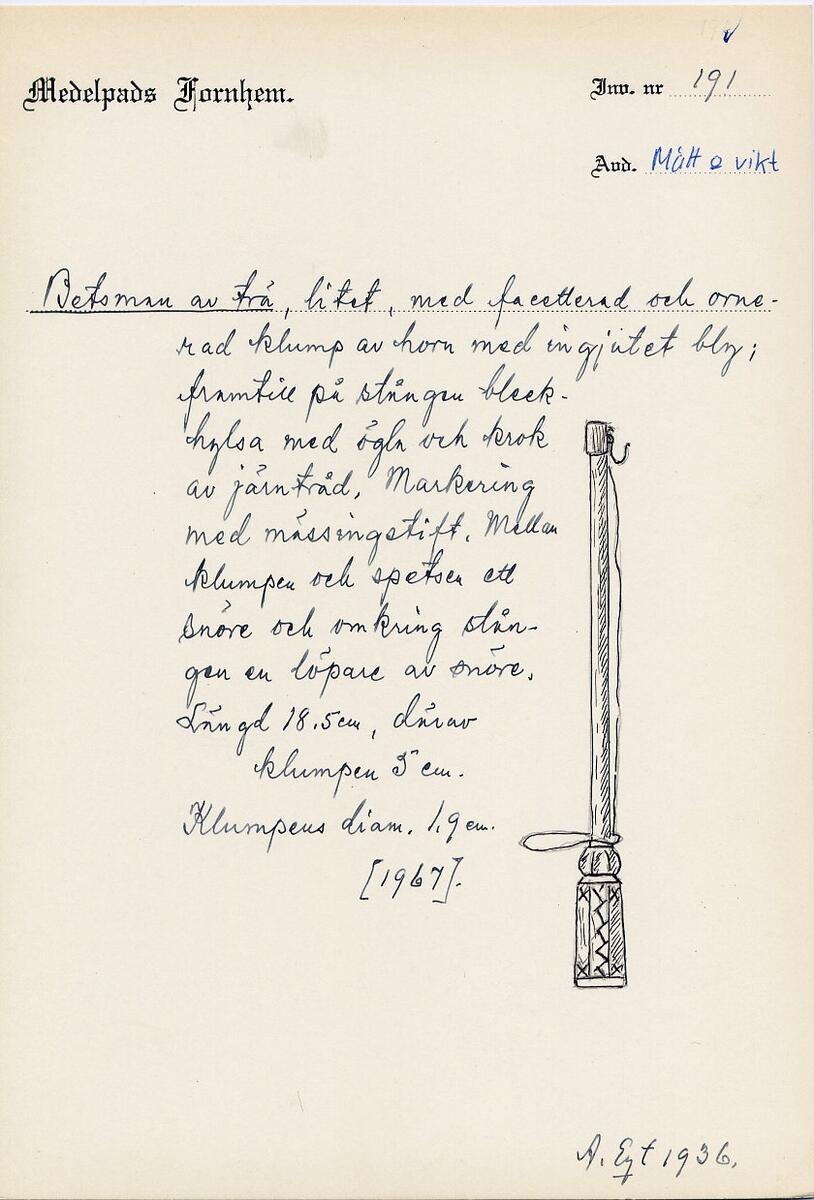 Medelpads Fornhem.
Inv. nr 191
Avd. Mått o vikt
Betsman av trä, litet, med facetterad och orne-
rad klump av horn med ingjutet bly;
framtill på stången bleck-
hylsa med ögla och krok
av järntråd. Markering
med mässingstift. Mellan
klumpen och spetsen ett
snöre och omkring stån-
gen en löpare av snöre.
Längd 18.5 cm, därav
klumpen 5 cm.
Klumpens diam. 1.9 cm.
[1967].
A. Eyt 1936.